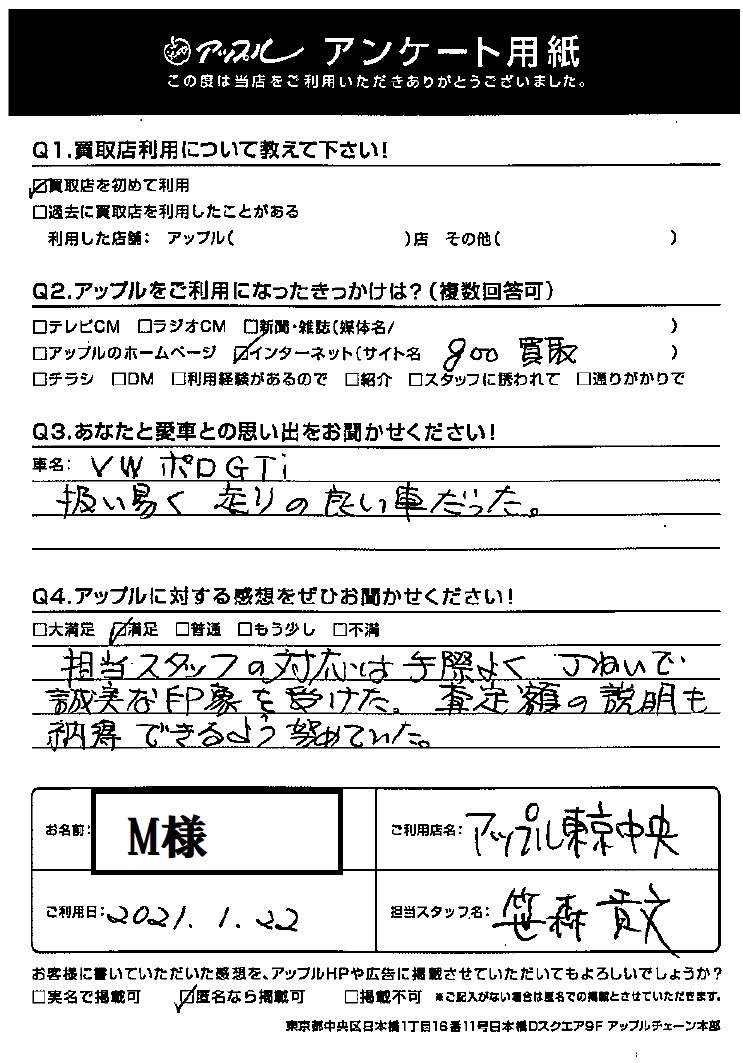 アップル アンケート用紙
この度は当店をご利用いただきありがとうございました。
Q1.買取店利用について教えて下さい!
☑買取店を初めて利用
□過去に買取店を利用したことがある
利用した店舗: アップル( )店 その他( )
Q2.アップルをご利用になったきっかけは?(複数回答可)
□テレビCM □ラジオCM □新聞・雑誌(媒体名/ )
□アップルのホームページ ☑インターネット(サイト名 goo 買取 )
□チラシ □DM □利用経験があるので □紹介 □スタッフに誘われて □通りがかりで
Q3.あなたと愛車との思い出をお聞かせください!
車名: VW ポロGTi
扱い易く 走りの良い車だった。
Q4.アップルに対する感想をぜひお聞かせください!
□大満足 ☑満足 □普通 □もう少し □不満
担当スタッフの対応は手際よく 丁ねいで
誠実な印象を受けた。査定額の説明も
納得できるよう努めていた。
お名前: M様 ご利用店名: アップル東京中央
ご利用日: 2021.1.22 担当スタッフ名: 笹森 貢文
お客様に書いていただいた感想を、アップルHPや広告に掲載させていただいてもよろしいでしょうか?
□実名で掲載可 ☑匿名なら掲載可 □掲載不可 ※ご記入がない場合は匿名での掲載とさせていただきます。
東京都中央区日本橋1丁目16番11号日本橋Dスクエア9F アップルチェーン本部